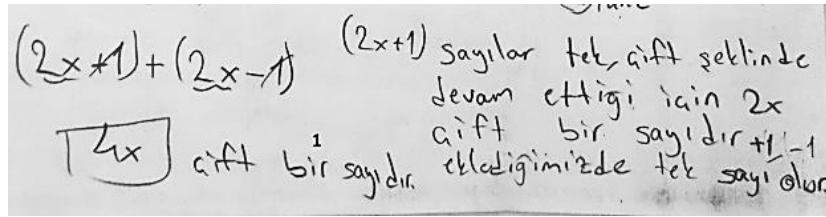 (2x+1)+(2x-1)
4x çift bir sayıdır.
1
(2x+1) sayılar tek, çift şeklinde
devam ettiği için 2x
çift bir sayıdır +1, -1
eklediğimizde tek sayı olur